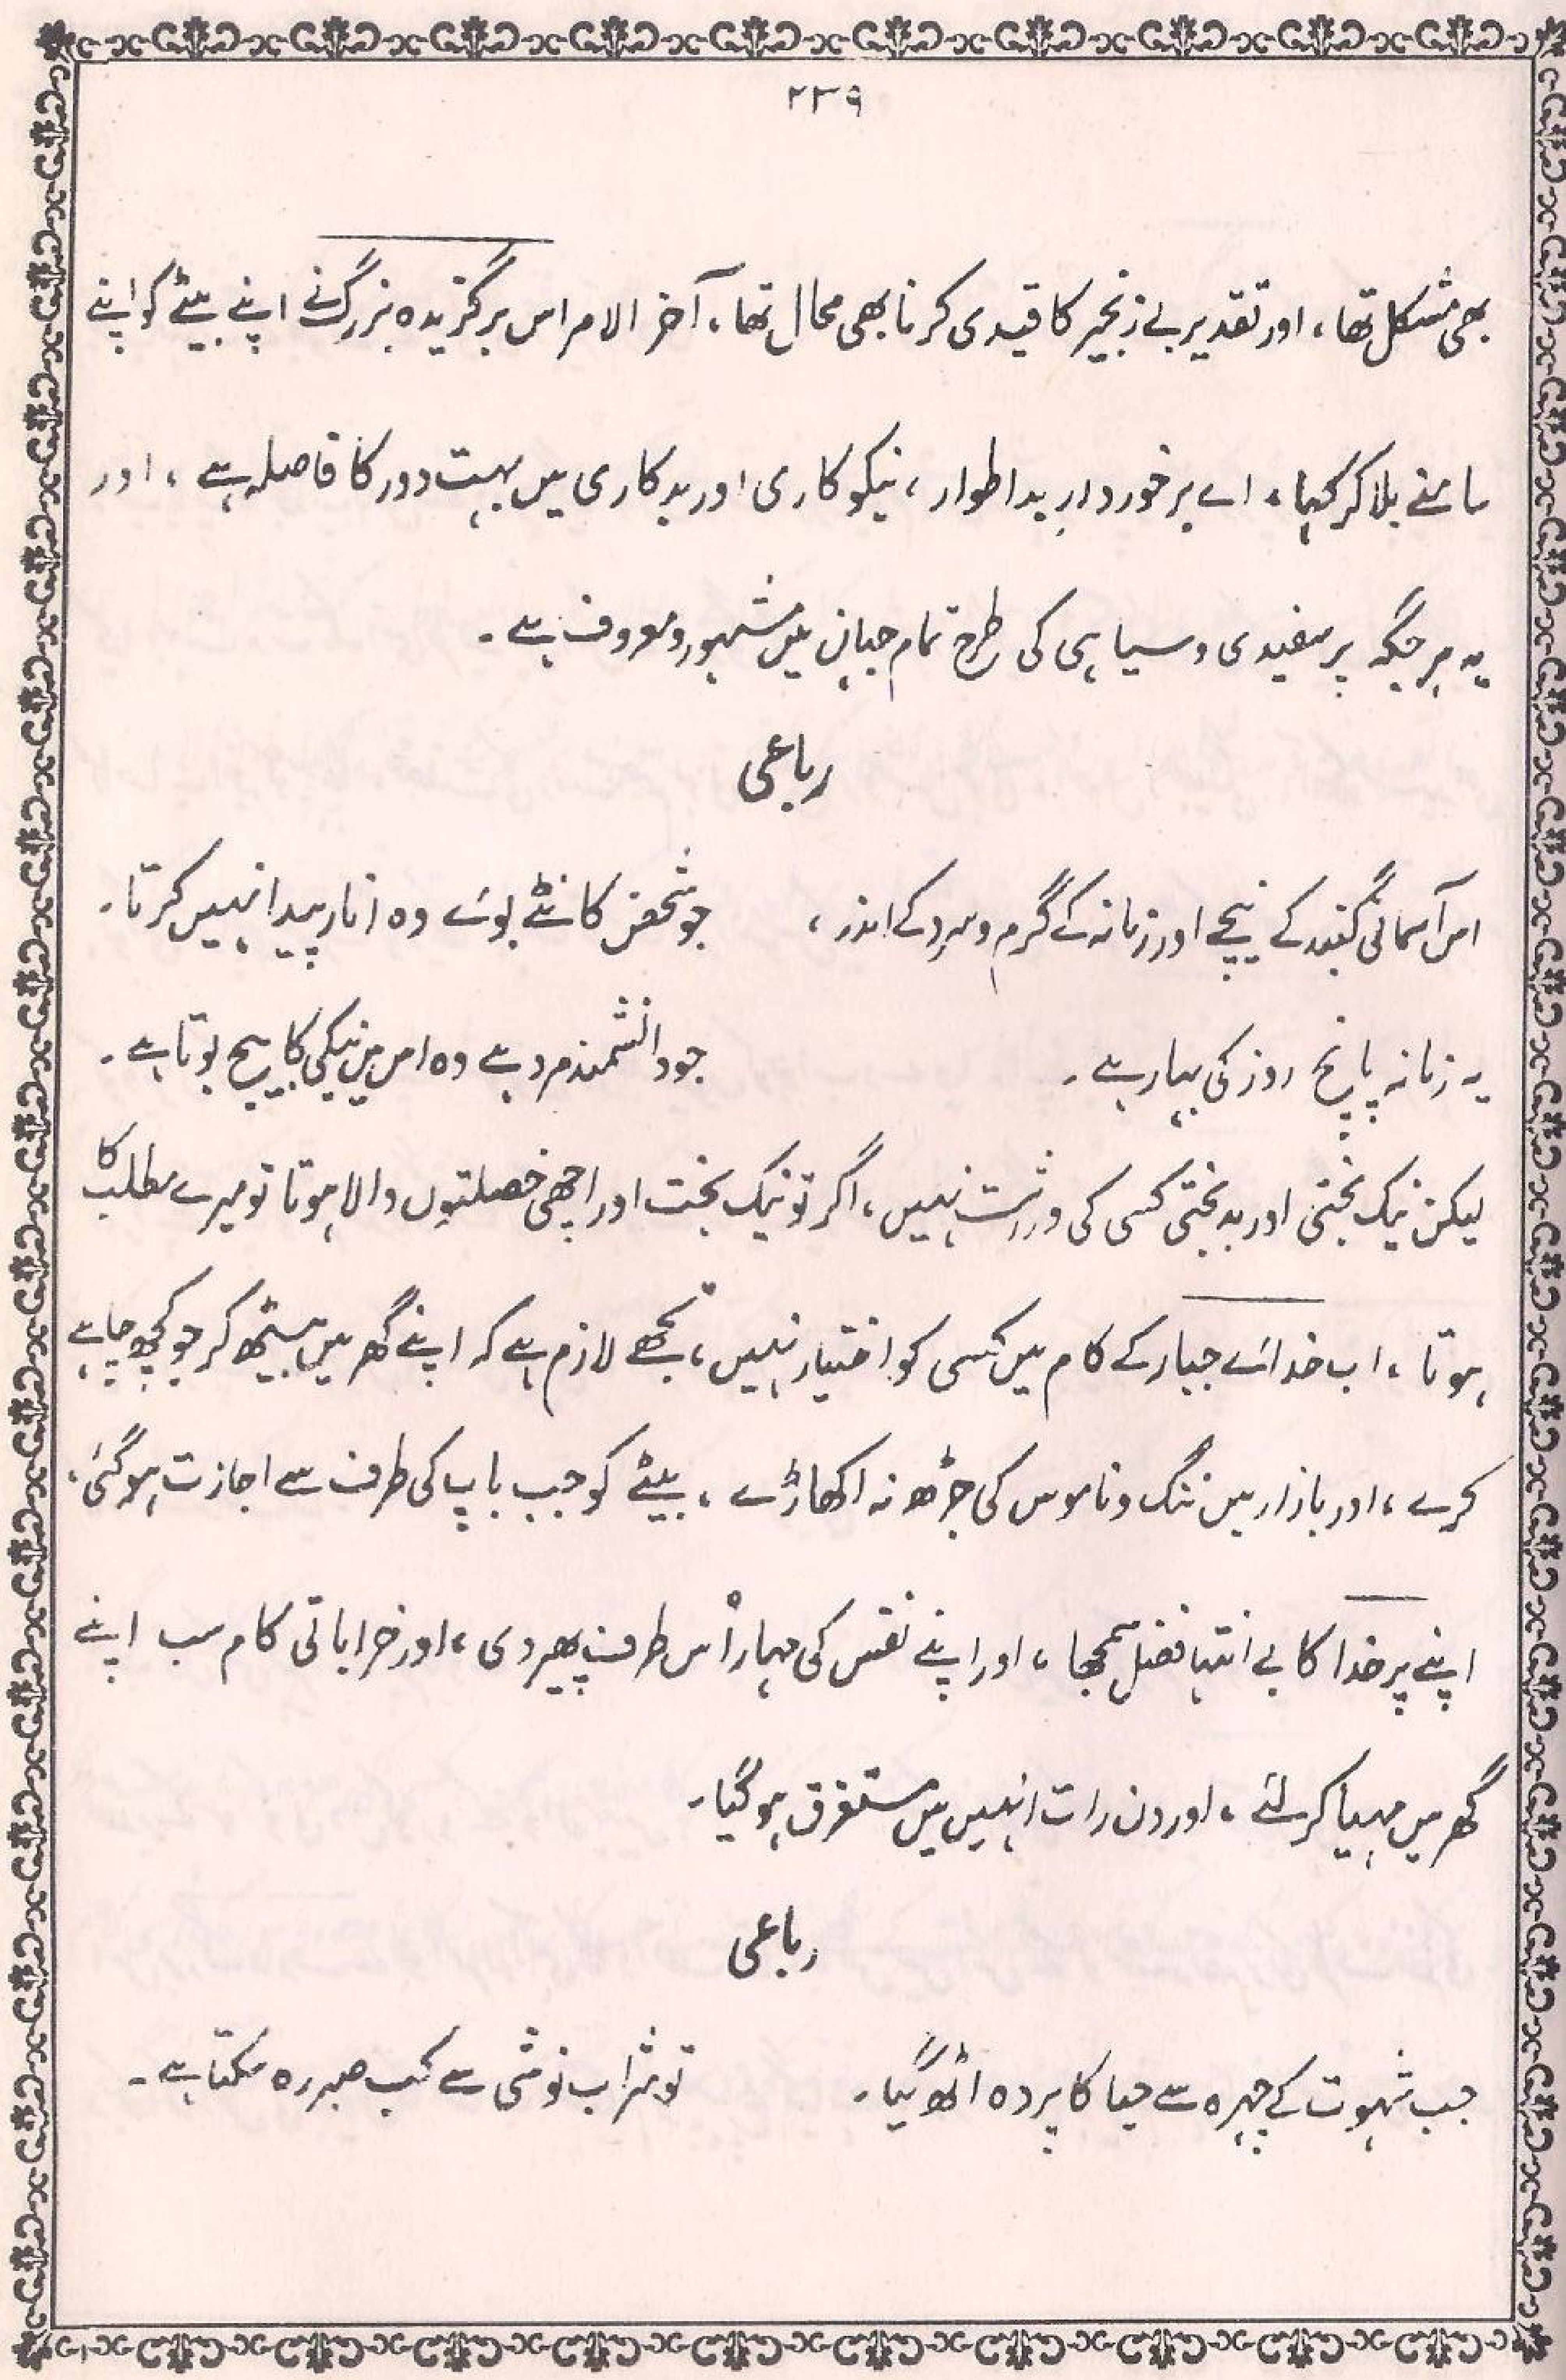 ۲۳۹
بھی مشکل تھا، اور تقدیر بے زنجیر کا قیدی کرنا بھی محال تھا، آخر الامر اس برگزیدہ بزرگ نے اپنے بیٹے کو اپنے
سامنے بلا کر کہا، اے برخوردارِ بد اطوار، نیکو کاری اور بدکاری میں بہت دور کا فاصلہ ہے، اور
یہ ہر جگہ پر سفیدی و سیاہی کی طرح تمام جہان میں مشہور و معروف ہے۔
رباعی
اس آسمانی گنبد کے نیچے اور زمانہ کے گرم و سرد کے اندر، جو شخص کانٹے بوئے وہ انار پیدا نہیں کرتا۔
یہ زمانہ پانچ روز کی بہار ہے۔ جو دانشمند مرد ہے وہ اس میں نیکی کا بیج بوتا ہے۔
لیکن نیک بختی اور بدبختی کسی کی ورثت نہیں، اگر تو نیک بخت اور اچھی خصلتوں والا ہوتا تو میرے مطلب کا
ہوتا، اب خدائے جبار کے کام میں کسی کو اختیار نہیں، تجھے لازم ہے کہ اپنے گھر میں بیٹھ کر جو کچھ چاہے
کرے، اور بازار میں ننگ و ناموس کی جڑھ نہ اکھاڑے، بیٹے کو جب باپ کی طرف سے اجازت ہو گئی،
اپنے پر خدا کا بے انتہا فضل سمجھا، اور اپنے نفس کی مہار اُس طرف پھیر دی، اور خراباتی کام سب اپنے
گھر میں مہیا کر لئے، اور دن رات انہیں میں مستغرق ہو گیا۔
رباعی
جب شہوت کے چہرہ سے حیا کا پردہ اٹھ گیا۔ تو شراب نوشی سے کب صبر رہ سکتا ہے۔